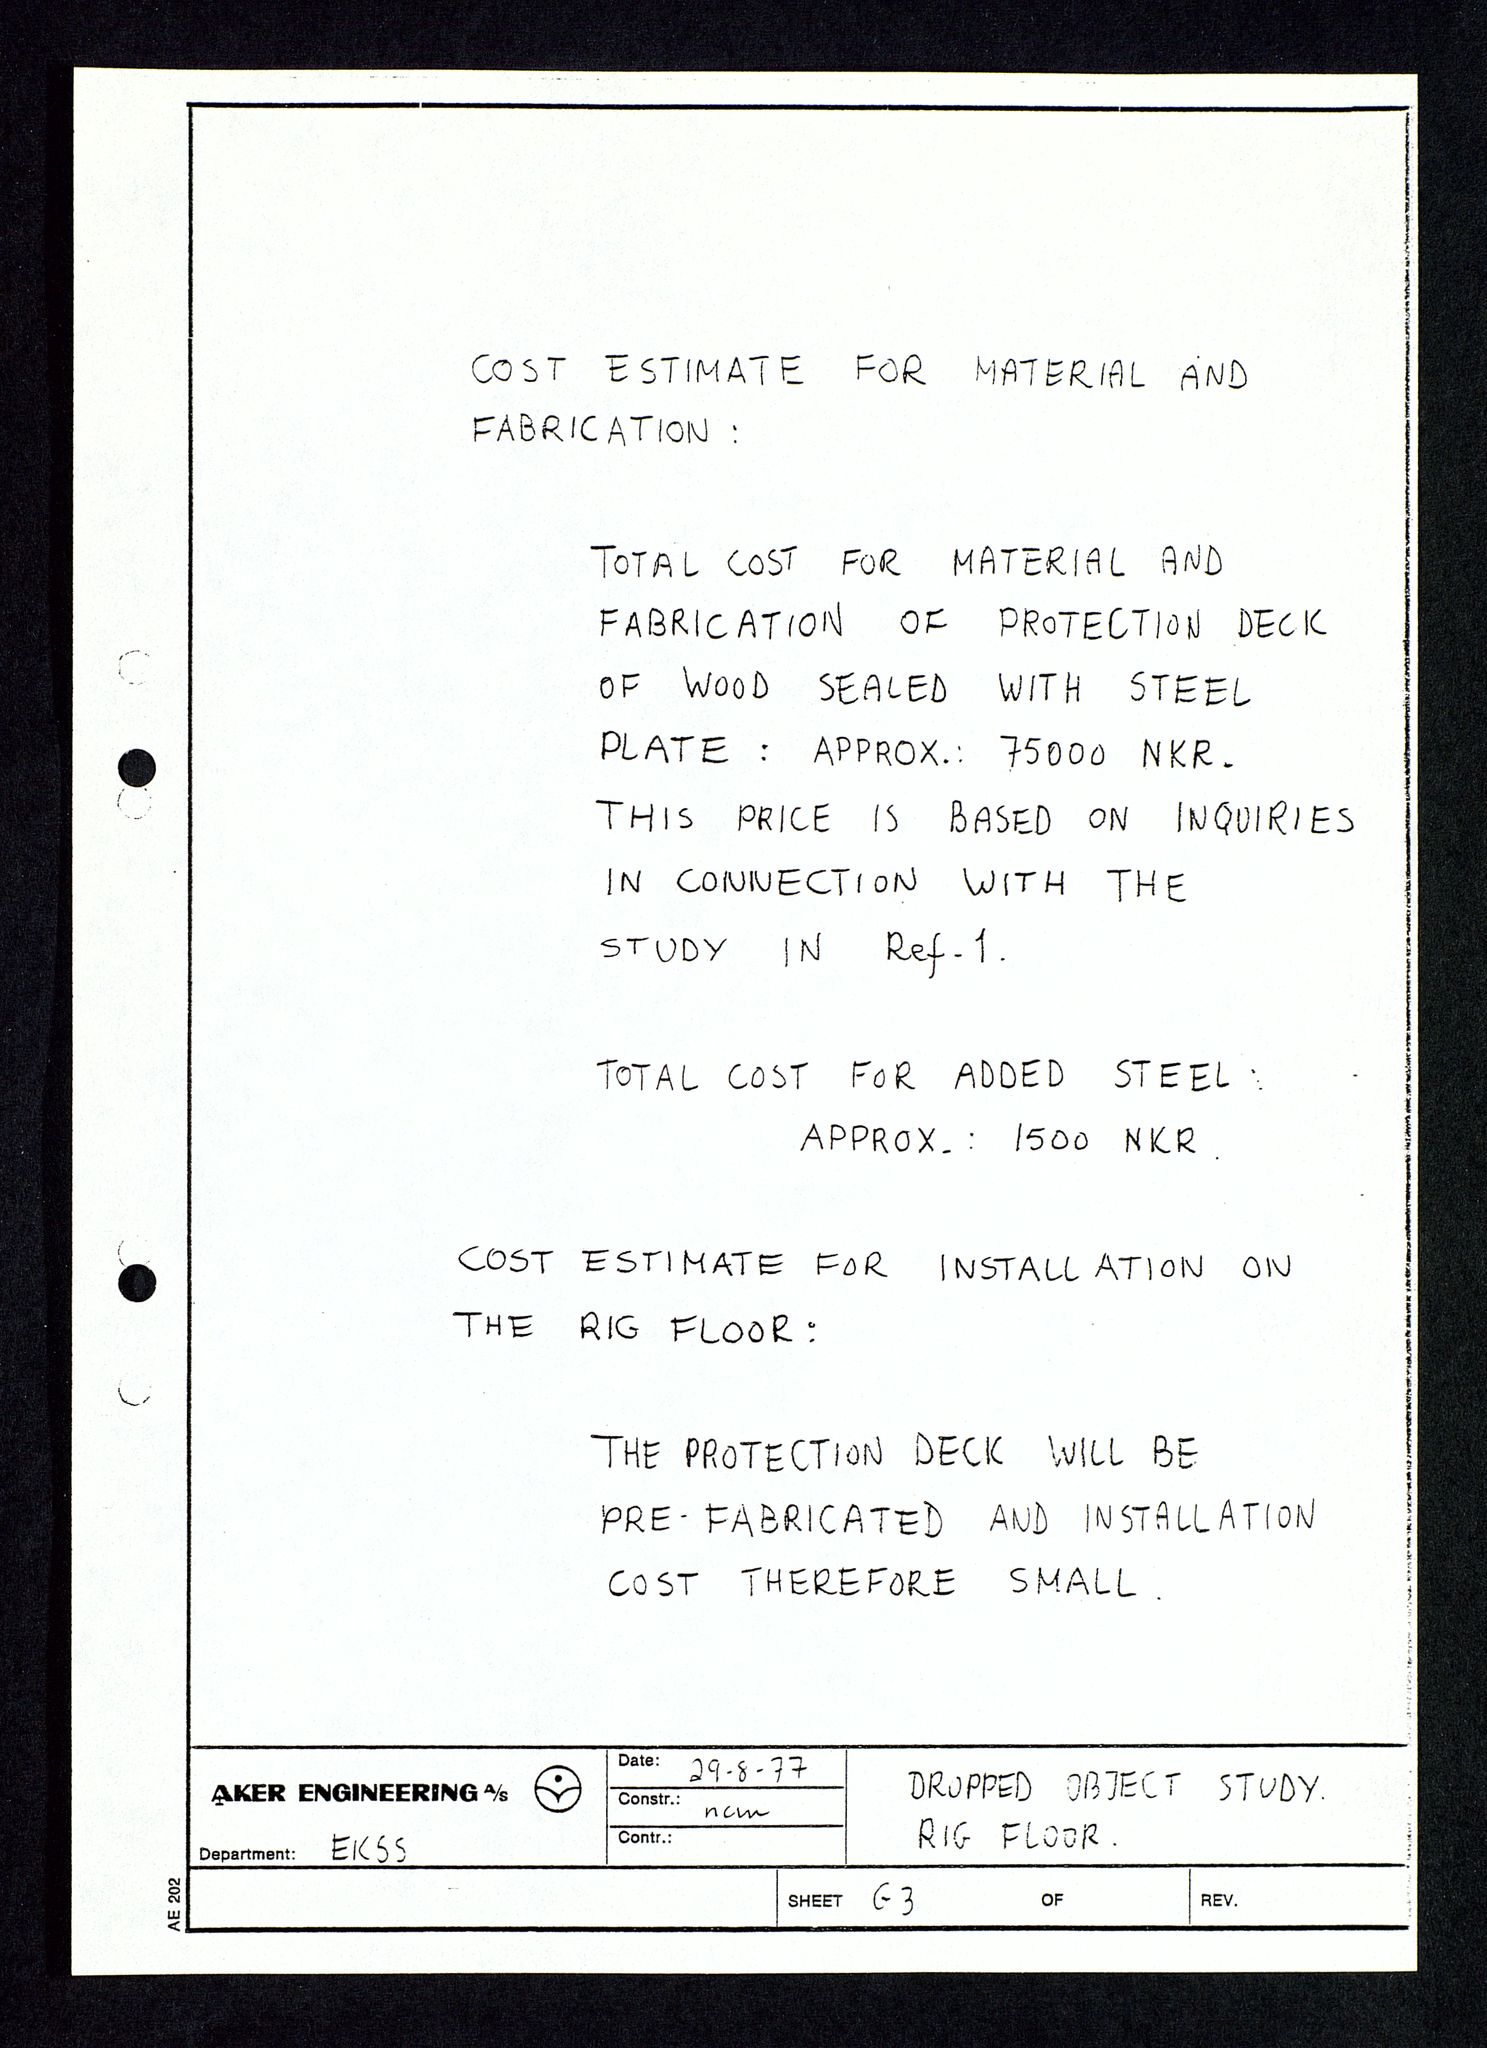 COST ESTIMATE FOR MATERIAL AND
FABRICATION :
TOTAL COST FOR MATERIAL AND
FABRICATION OF PROTECTION DECK
OF WOOD SEALED WITH STEEL
PLATE : APPROX.: 75000 NKR.
THIS PRICE IS BASED ON INQUIRIES
IN CONNECTION WITH THE
STUDY IN Ref-1.
TOTAL COST FOR ADDED STEEL :
APPROX. : 1500 NKR.
COST ESTIMATE FOR INSTALLATION ON
THE RIG FLOOR :
THE PROTECTION DECK WILL BE
PRE-FABRICATED AND INSTALLATION
COST THEREFORE SMALL.
AKER ENGINEERING A/S
Department: EKSS
Date: 29-8-77
Constr.: ncm
Contr.:
DROPPED OBJECT STUDY.
RIG FLOOR.
SHEET G3 OF
REV.
AE 202